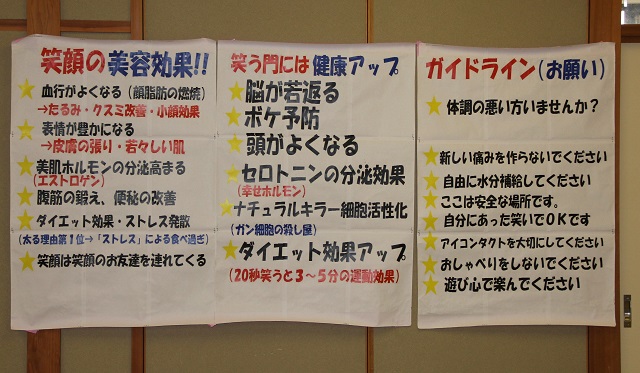 笑顔の美容効果!!
血行がよくなる（顔脂肪の燃焼）
→たるみ・クスミ改善・小顔効果
表情が豊かになる
→皮膚の張り・若々しい肌
美肌ホルモンの分泌高まる
(エストロゲン)
腹筋の鍛え、便秘の改善
ダイエット効果・ストレス発散
(太る理由第1位→「ストレス」による食べ過ぎ)
笑顔は笑顔のお友達を連れてくる
笑う門には健康アップ
脳が若返る
ボケ予防
頭がよくなる
セロトニンの分泌効果
(幸せホルモン)
ナチュラルキラー細胞活性化
(ガン細胞の殺し屋)
ダイエット効果アップ
(20秒笑うと3～5分の運動効果)
ガイドライン(お願い)
体調の悪い方いませんか？
新しい痛みを作らないでください
自由に水分補給してください
ここは安全な場所です。
自分にあった笑いでOKです
アイコンタクトを大切にしてください
おしゃべりをしないでください
遊び心で楽んでください